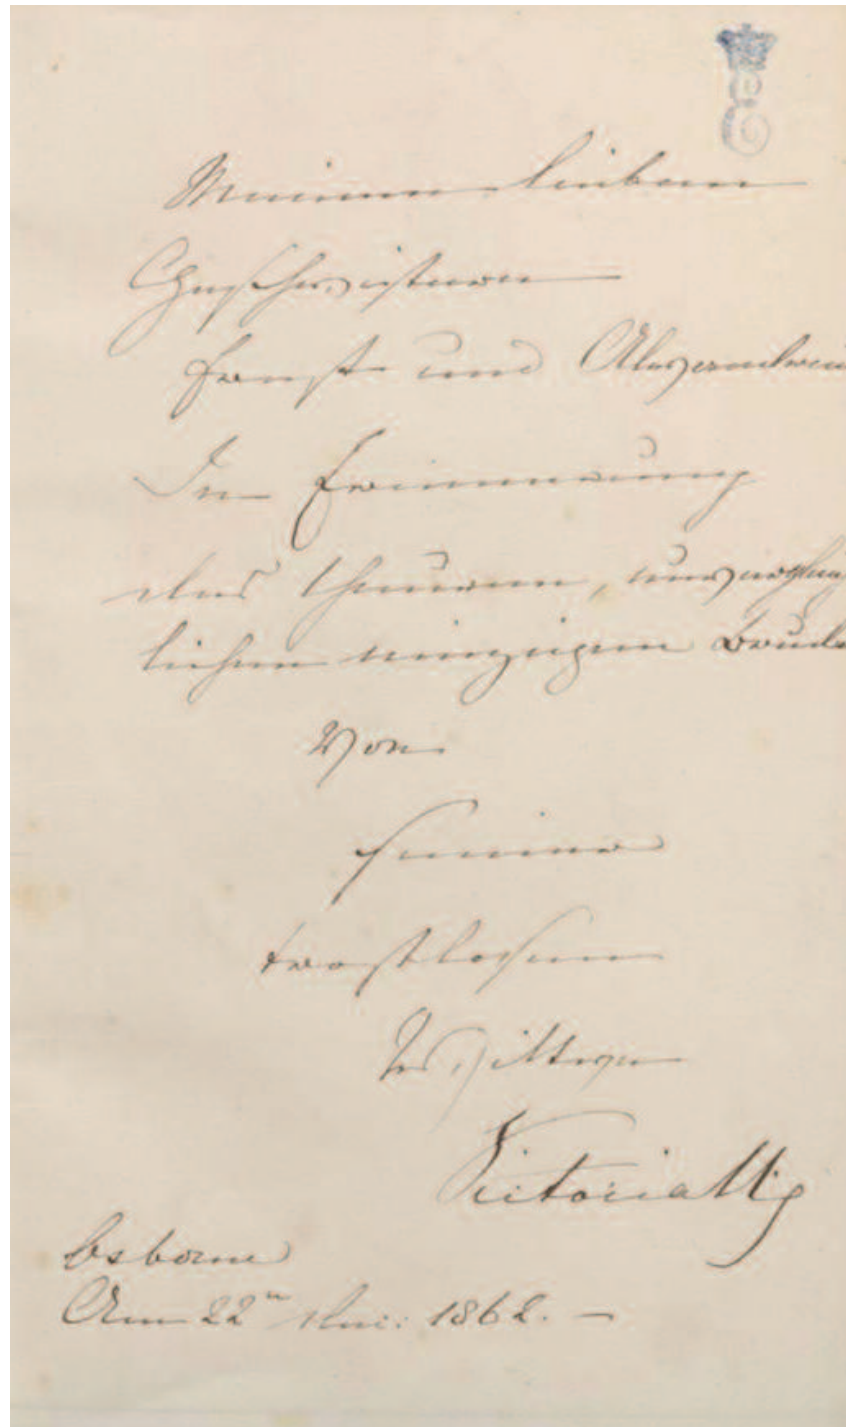 Meinen lieben
Geschwistern
Ernst und Alexandrine
In Erinnerung
des theuren, unvergeß-
lichen einzigen Bruders
von
seiner
trostlosen
Wittwe
Victoria
Osborne
Am 22ⁿ 1862. —